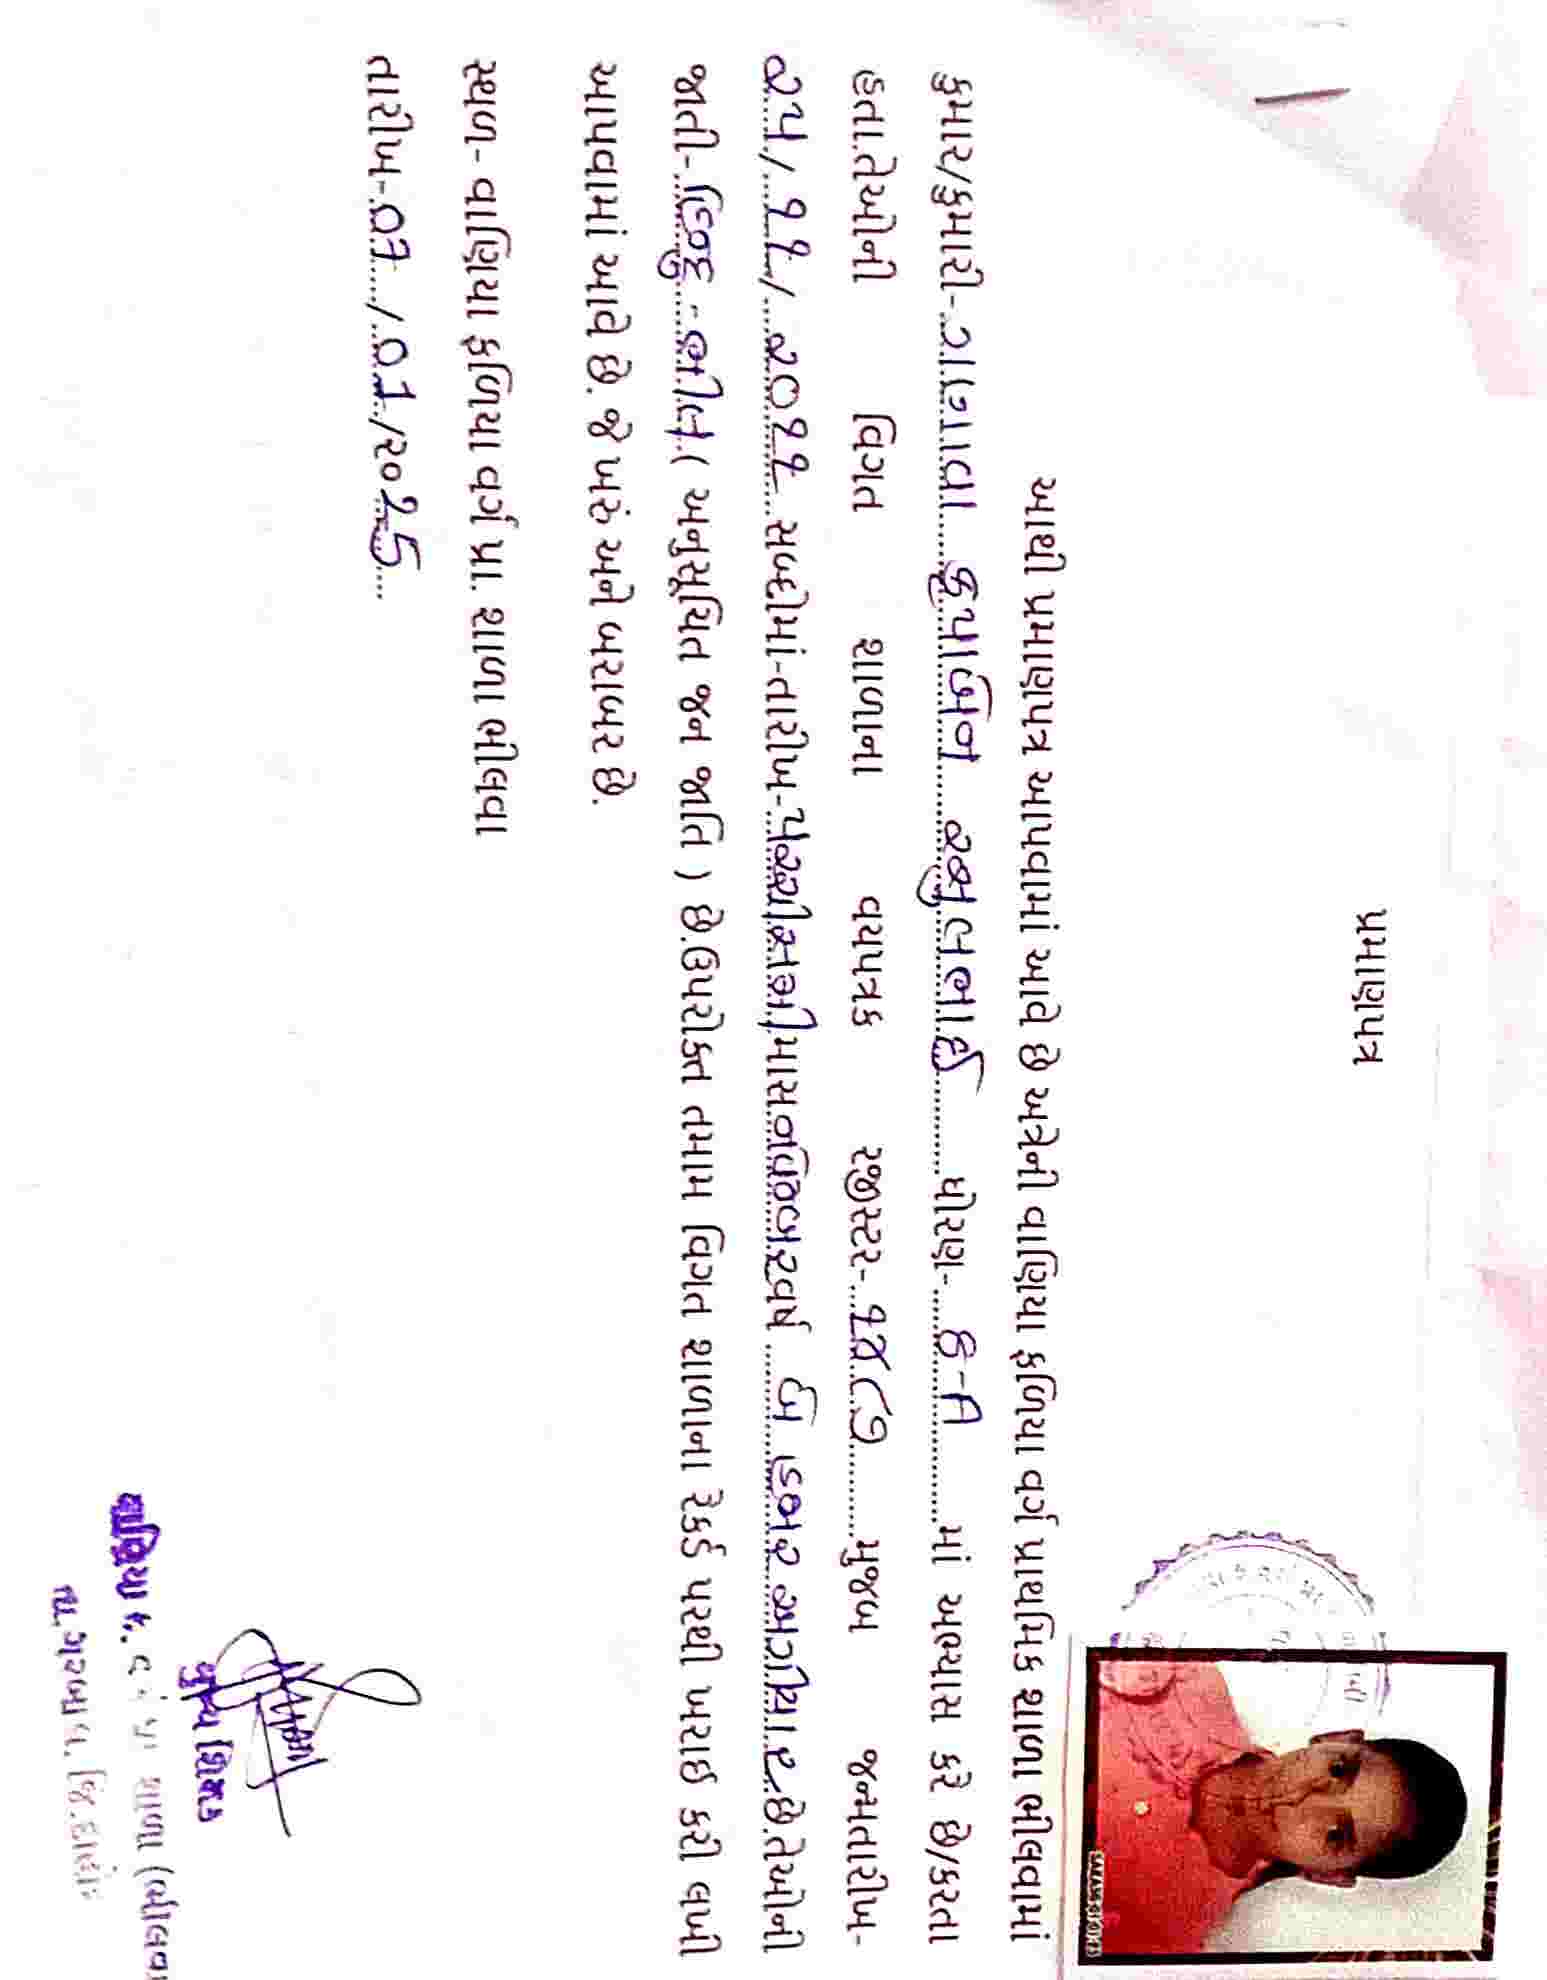 પ્રમાણપત્ર
આથી પ્રમાણપત્ર આપવામાં આવે છે અત્રેની વાણિયા ફળિયા વર્ગ પ્રાથમિક શાળા ભીલવામાં
કુમાર/કુમારી-ગણાવા કૃપાબેન રમુલભાઈ ધોરણ- ૬-A માં અભ્યાસ કરે છે/કરતા
હતા.તેઓની વિગત શાળાના વયપત્રક રજીસ્ટર- ૧૪૮૭ મુજબ જન્મતારીખ-
૨૫/ ૧૧/ ૨૦૧૧ સબ્દોમાં-તારીખ-પચ્ચીસમી માસ નવેમ્બર વર્ષ બે હજાર અગીયાર છે.તેઓની
જાતી-હિન્દુ - ભીલ ( અનુસૂચિત જન જાતિ ) છે.ઉપરોક્ત તમામ વિગત શાળાના રેકર્ડ પરથી ખરાઈ કરી લખી
આપવામાં આવે છે. જે ખરું અને બરાબર છે.
સ્થળ- વાણિયા ફળિયા વર્ગ પ્રા. શાળા ભીલવા
તારીખ-07 / 01/૨૦25
મુખ્ય શિક્ષક
વાણિયા ફ. વર્ગ પ્રા શાળા (ભીલવા
તા.ગરબાડા. જિ.દાહોદ